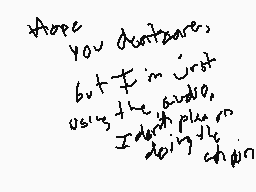 Hope
you dont care,
but I'm just
using the audio,
I don't plan on
doing the